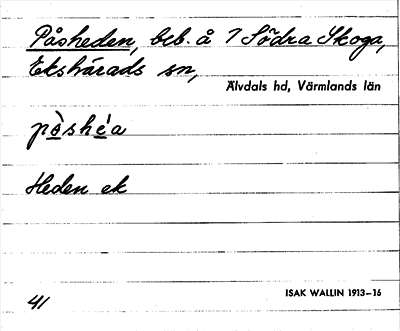 Påsheden, beb. å 7 Södra Skoga,
Ekshärads sn,
Älvdals hd, Värmlands län
pò̲shé̲a
Heden ek
ISAK WALLIN 1913–16
41